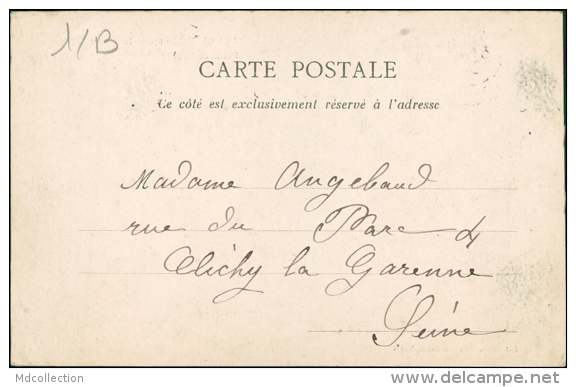 1/B
CARTE POSTALE
Ce côté est exclusivement réservé à l'adresse
Madame Angebaud
rue du Parc 4
Clichy la Garenne
Seine
Mdcollection
delcampe.net